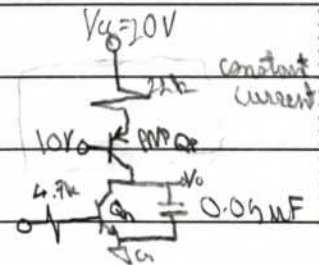 Vcc=20V
22k
constant
current
10V
PNP Qp
Vo
4.7k
Qn
0.05µF